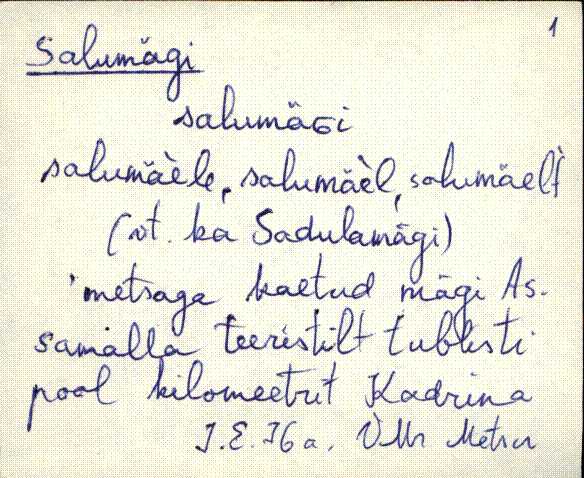 1
Salumägi
salumäGi
salumäèle, salumäèl, salumäelt
(vt. ka Sadulamägi)
'metsaga kaetud mägi As-
samalla teeristilt tublisti
pool kilomeetrit Kadrina
J.E. 76 a.